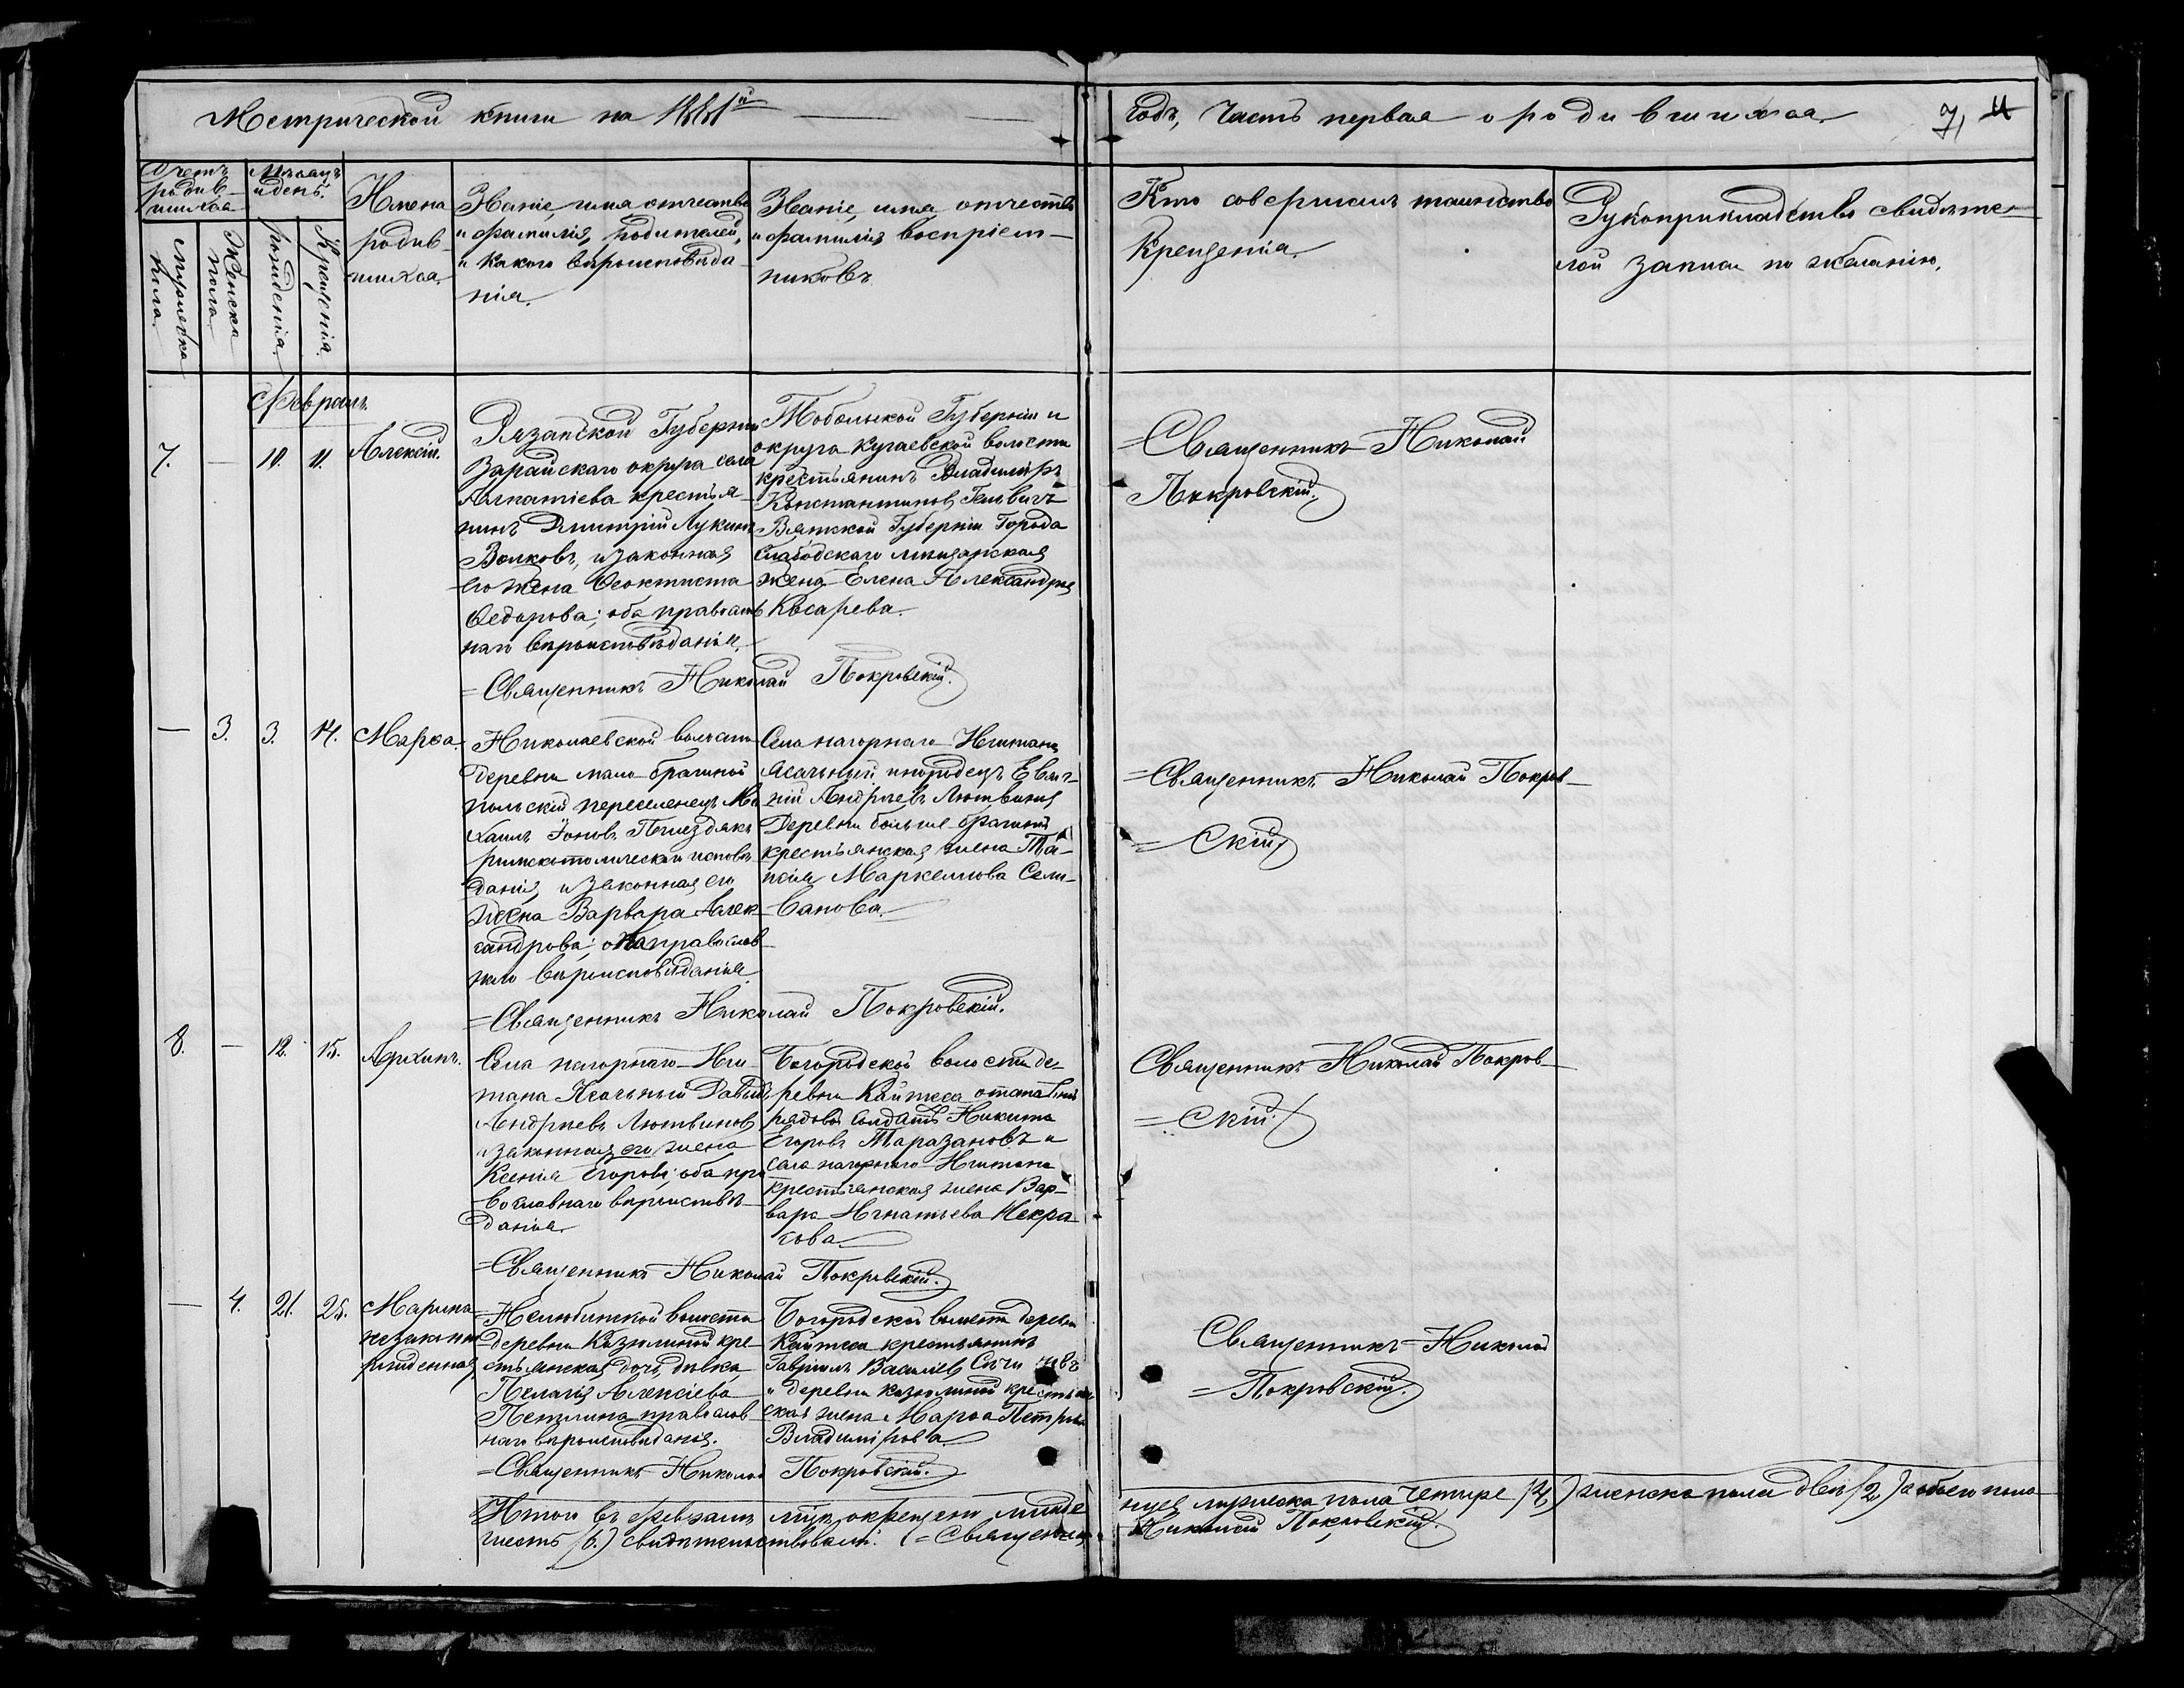 Метрической книги на 1881й
годъ, Часть первая о родившихся.
7,
Счетъ
родив-
шихся
Мѣсяцъ
и день.
мужеска
пола.
Женска
пола.
рожденія.
Крещенія.
Имена
родив-
шихся.
Званіе, имя отчество
и фамилія, родителей,
и какого вѣроисповѣда-
нія.
Званіе, имя отчество
и фамилія воспріем-
никовъ
Кто совершилъ таинство
Крещенія.
Рукоприкладство свидѣте-
лей записи по желанію.
Февраль.
7.
—
10.
11.
Алексій.
Рязанской Губерніи
Зарайскаго округа села
Алпатіева крестья-
нинъ Димитрій Лукинъ
Волковъ, и законная
его жена Ѳеоктиста
Ѳедорова; оба православ
наго вѣроисповѣданія.
Тобольской Губерніи и
округа Кугаевской волости
крестьянинъ Владиміръ
Константиновъ
Вятской Губерніи Города
Слободскаго мѣщанская
жена Елена Александра
Косарева.
=Священникъ Николай
Покровскій.
=Священникъ Николай Покровскій.
—
3.
3.
14.
Марѳа.
Николаевской волости
деревни мало-брагиной
польскій переселенецъ Ми
хаилъ Іоновъ
римскокатолическаго исповѣ
данія, и законная его
жена Варвара Алек-
сандрова; она православ-
наго вѣроисповѣданія
Села нагорнаго-Иштана
Ясачный инородецъ Евге-
ній Андреевъ Лютвинъ
Деревни больше-брагиной
крестьянская жена Та-
исія Маркеллова Сели-
ванова.
=Священникъ Николай Покров-
=скій
=Священникъ Николай Покровскій.
8.
—
12.
15.
Архипъ.
Села нагорнаго-Иш-
тана Ясачный Давыдъ
Андреевъ Лютвиновъ
и законная его жена
Ксенія Егорова; оба пра
вославнаго вѣроисповѣ-
данія.
Богородской волости де-
ревни Кайтеса отставный
рядовой солдатъ Никита
Егоровъ Таразановъ и
села нагорнаго-Иштана
крестьянская жена Вар-
вара Игнатьева Некра-
сова
Священникъ Николай Покров-
=скій.
=Священникъ Николай Покровскій.
—
4.
21.
25.
Марина
незаконно
рожденная
=Нелюбинской волости
деревни Казюлиной кре-
стьянская дочь, дѣвка
Пелагія Алексіева
Петлина православ
наго вѣроисповѣданія.
Богородской волости деревни
Кайтеса крестьянинъ
Гавріилъ Василіевъ
и деревни Казюлиной крестьян
ская жена Марѳа Петрова
Владимірова
Священникъ Николай
=Покровскій.
=Священникъ Николай Покровскій.
Итого въ февралѣ мцѣ, окрещено младе
нцев мужеска пола четыре (4,) женска пола двѣ (2,) а обоего пола
шесть (6.) свидѣтельствовалъ: (=Священникъ
Николай Покровскій.